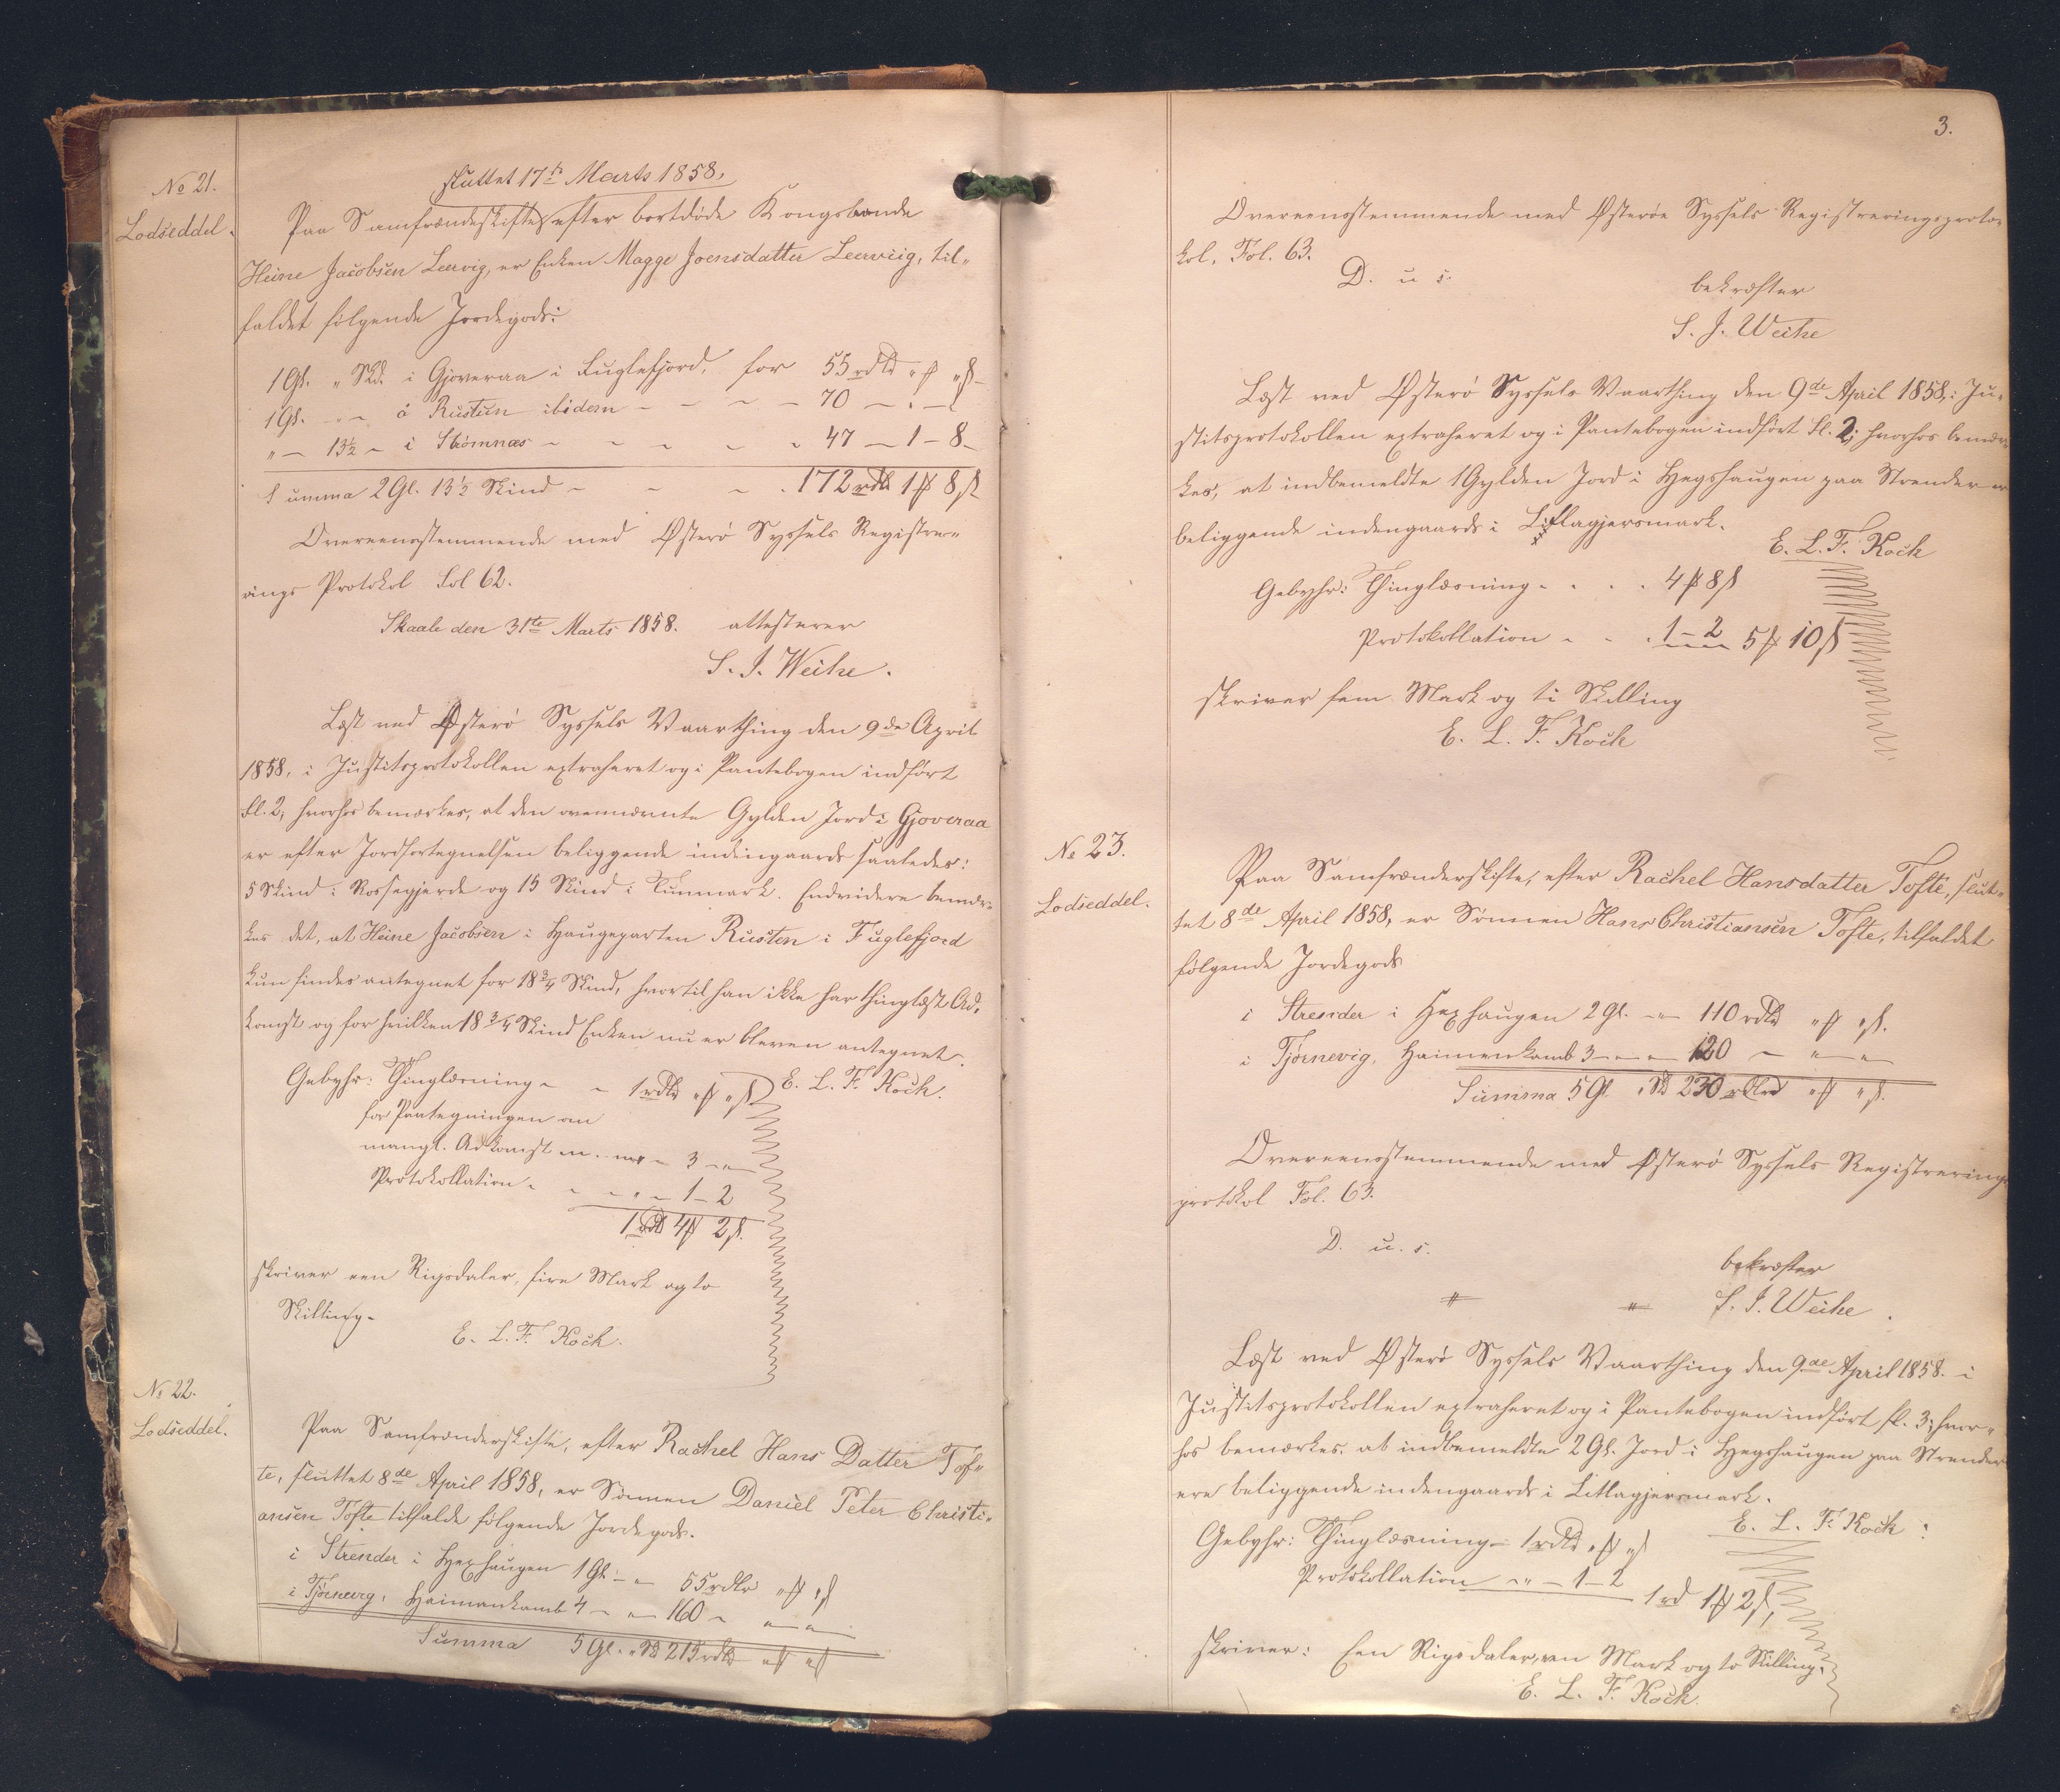 No 21.
Lodseddel.
sluttet 17de Marts 1858.
Paa Samfrændeskifte efter bortdøde Kongsbonde
Heine Jacobsen Leervig, er Enken Magge Joensdatter Leerviig, til-
faldet følgende Jordegods:
1 Gl. " Skd. i Gjoveraa i Fuglefjord, for 55 rdlr " ȸ " ß
1 Gl. " - å Rusten ibidem - - - - 70 - " - "
" - 13½ - i Strømnæs - - - - - 47 - 1 - 8 -
Summa 2 Gl. 13½ Skind - - - - 172 rdlr 1 ȸ 8 ß
Overeensstemmende med Østerö Syssels Registre-
rings Protokol Fol 62.
Skaale den 31te Marts 1858. attesterer
S. J. Weihe.
Læst ved Østerö Syssels Vaarthing den 9de April
1858, i Justitsprotokollen extraheret og i Pantebogen indført
Fl. 2, hvorhos bemærkes, at den ovennævnte Gylden Jord i Gjoveraa
er efter Jordfortegnelsen beliggende indengaards saaledes:
5 Skind i Rossegjerde og 15 Skind i Tunmark. Endvidere bemær-
kes det, at Heine Jacobsen i Haugeparten Rusten i Fuglefjord
kun findes antegnet for 18¾ Skind, hvortil han ikke har thinglæst Ad-
komst og for hvilken 18¾ Skind Enken nu er bleven antegnet.
E. L. F. Koch.
Gebyhr: Thinglæsning - - 1 rdlr " ȸ " ß
for Paategningen om
mangl. Adkomst - - 3 - "
Protokollation - - - " - 1 - 2
1 rdlr 4 ȸ 2 ß.
skriver een Rigsdaler, fire Mark og to
Skilling.
E. L. F. Koch.
No 22.
Lodseddel.
Paa Samfrænderskifte, efter Rachel Hans Datter Tof-
te, sluttet 8de April 1858, er Sönnen Daniel Peter Christi-
ansen Tofte tilfalde følgende Jordegods.
i Strender i Hegshaugen 1 Gl. - " 55 rdlr " ȸ " ß
i Tjörnevig, Heimankamb 4 - " - 160 - " - "
Summa 5 Gl. " Sk 215 rdlr " ȸ " ß
3.
Overeensstemmende med Østeröe Syssels Registreringsproto-
kol, Fol. 63.
D. u s.
bekræfter
S. J. Weihe
Læst ved Østerö Syssels Vaarthing den 9de April 1858, i Ju-
stitsprotokollen extraheret og i Pantebogen indført Fl. 2; hvorhos bemær-
kes, at indbemeldte 1 Gylden Jord i Hegshaugen paa Strender er
beliggende indengaards i Litlagjersmark.
E. L. F. Koch
Gebyhr: Thinglæsning - - - 4 ȸ 8 ß
Protokollation - - - 1 - 2 5 ȸ 10 ß
skriver fem Mark og ti Skilling
E. L. F. Koch
No 23.
Lodseddel.
Paa Samfrænderskifte, efter Rachel Hansdatter Tofte, slut-
tet 8de April 1858, er Sönnen Hans Christiansen Tofte, tilfaldet
følgende Jordegods
i Strender i Hegshaugen 2 Gl. - " - 110 rdlr " ȸ " ß.
i Tjørnevig, Heimenkamb 3 - " - 120 - " - "
Summa 5 Gl. " Sk 230 rdlr " ȸ " ß.
Overeensstemmende med Østerö Syssels Registrerings
protokol Fol. 63.
D. u. s.
bekræfter
S. J. Weihe.
Læst ved Østerö Syssels Vaarthing den 9de April 1858. i
Justitsprotokollen extraheret og i Pantebogen indført Fl. 3; hvor-
hos bemærkes, at indbemeldte 2 Gl. Jord i Hegshaugen paa Strender
ere beliggende indengaards i Litlagjersmark.
E. L. F. Koch.
Gebyhr: Thinglæsning - 1 rdlr " ȸ " ß
Protokollation - " - 1 - 2
1 rd 1 ȸ 2 ß,
skriver: Een Rigsdaler, een Mark og to Skilling.
E. L. F. Koch.